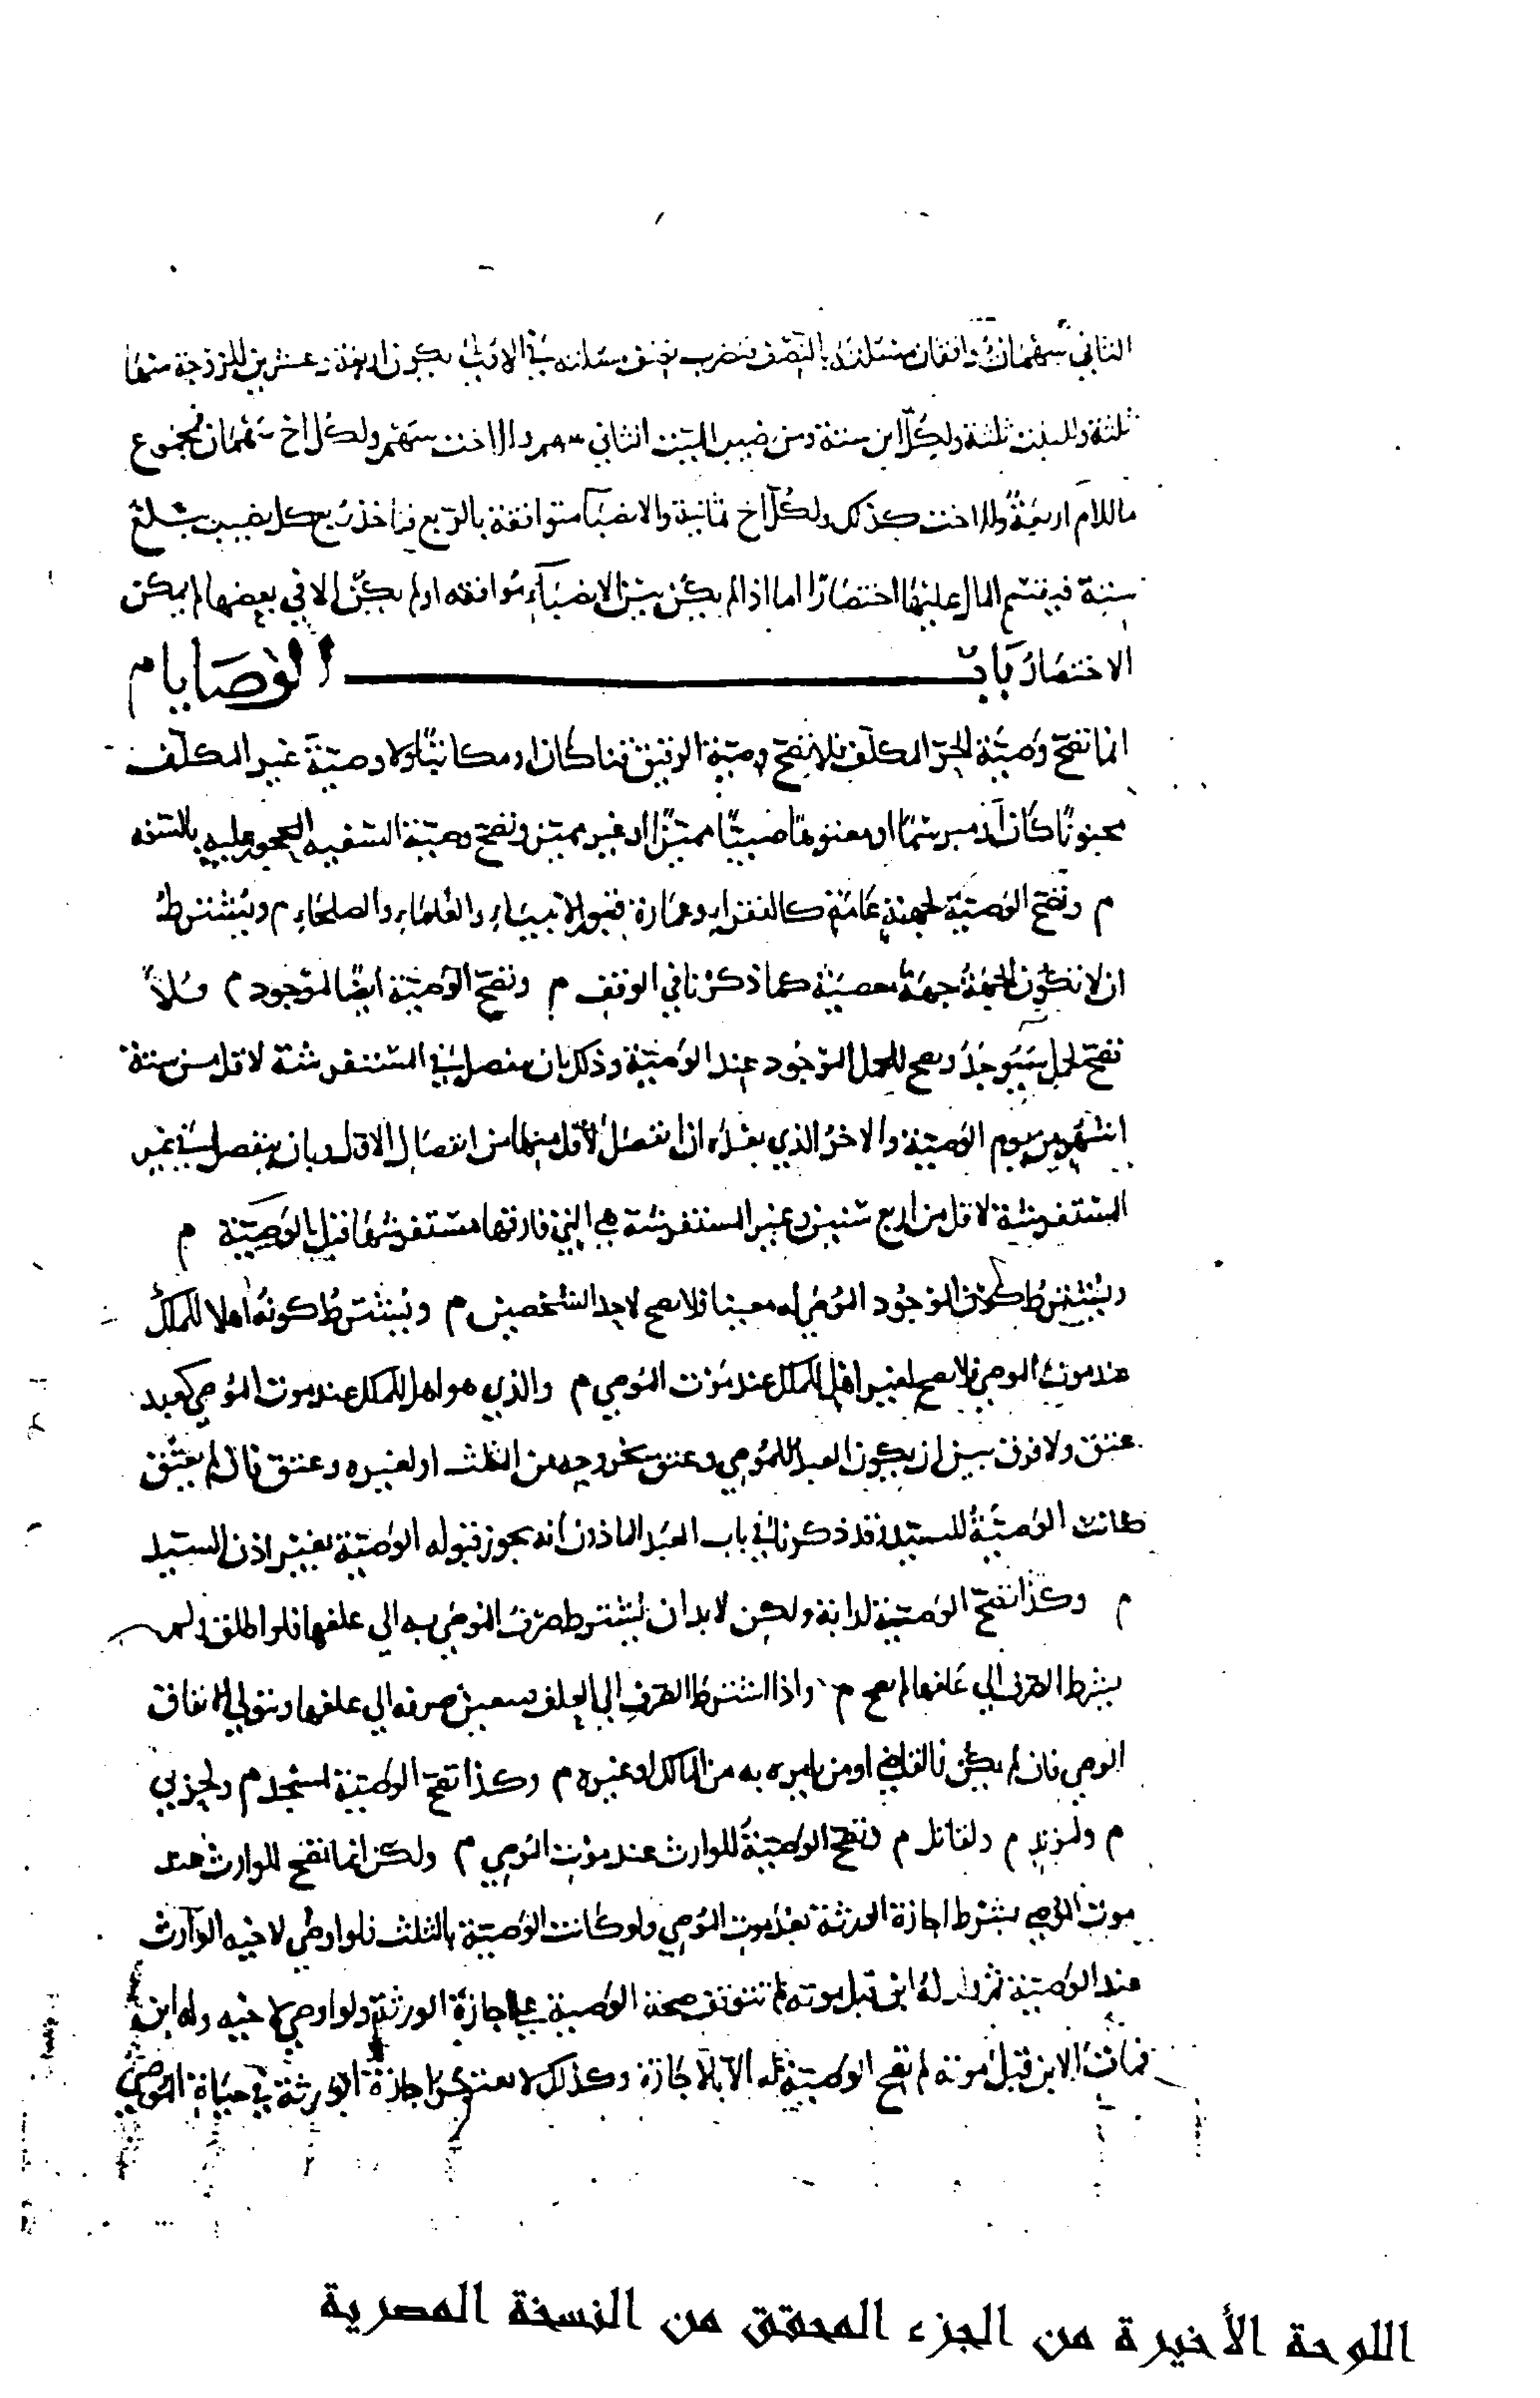 الثاني سهمان توافقان مسئلته بالنصف فتضرب نصف مسئلته في الاولى يكون اربعة وعشرين للزوجة منها
ثلثة وللبنت ثلثة ولكل ابن ستة ومن نصيب الميت الثاني سهم وللاخت سهم ولكل اخ سهمان فمجموع
ماللام اربعة وللاخت كذلك ولكل اخ ثمانية والانصباء متوافقة بالربع فتاخذ ربع كل نصيب يبلغ
ستة فيقتسم المال عليها اختصارًا اما اذا لم يكن بين الانصباء موافقه او لم يكن الا في بعضها لم يمكن
الاختصار باب الوصايا م
انما تصح وصية الحر المكلف فلا تصح وصية الرقيق قنا كان او مكاتبًا ولا وصية غير المكلف
مجنونًا كان او مبرسمًا او معتوهًا صبيًّا مميزًا او غير مميز وتصح وصية السفيه المحجور عليه بالسفه
م وتصح الوصية لجهة عامة كالفقراء وعمارة قبور الانبياء والعلماء والصلحاء م ويشترط
ان لا تكون الجهة جهة معصية كما ذكرنا في الوقف م وتصح الوصية ايضًا لموجود م فلا
تصح لحمل سيوجد وتصح للحمل الموجود عند الوصية وذلك بان ينفصل في المستفرشة لاقل من ستة
اشهر من يوم الوصية والاخر الذي بعده اذا انفصل لاقل منها من انفصال الاول وبان ينفصل في غير
المستفرشة لاقل من اربع سنين وغير المستفرشة هي التي فارقها مستفرشها قبل الوصية م
ويشترط كون الموجود الموصى له معينا فلا يصح لاحد الشخصين م ويشترط كونه اهلا للملك
عند موت الموصي فلا يصح لغير اهل الملك عند موت الموصي م والذي هو اهل للملك عند موت الموصي كعبد
عتق ولا فرق بين ان يكون العبد للموصي وعتق بخروجه من الثلث او لغيره وعتق فان لم يعتق
كانت الوصية للسيد وقد ذكرنا في باب العبد الماذون انه يجوز قبوله الوصية بغير اذن السيد
م وكذا تصح الوصية لدابة ولكن لا بد ان يشترط صرف الموصى به الى علفها فلو اطلق ولم
يشترط الصرف الى علفها لم يصح م واذا اشترط الصرف الى العلف تعين صرفه الى علفها ويتولى الانفاق
الوصي فان لم يكن فالقاضي او من يامره به من المالك او غيره م وكذا تصح الوصية لمسجد م ولحربي
م ولمرتد م ولقاتل م وتصح الوصية للوارث عند موت الموصي م ولكن انما تصح للوارث عند
موت الموصي بشرط اجازة الورثة بعد موت الموصي ولو كانت الوصية بالثلث فلو اوصى لاخيه الوارث
عند الوصية ثم ولد له ابن قبل موته لم تتوقف صحة الوصية على اجازة الورثة ولو اوصى لاخيه وله ابن
فمات الابن قبل موته لم تصح الوصية له الا بالاجازة وكذلك لا تعتبر اجازة الورثة في حياة الموصي
اللوحة الأخيرة من الجزء المحقق من النسخة المصرية